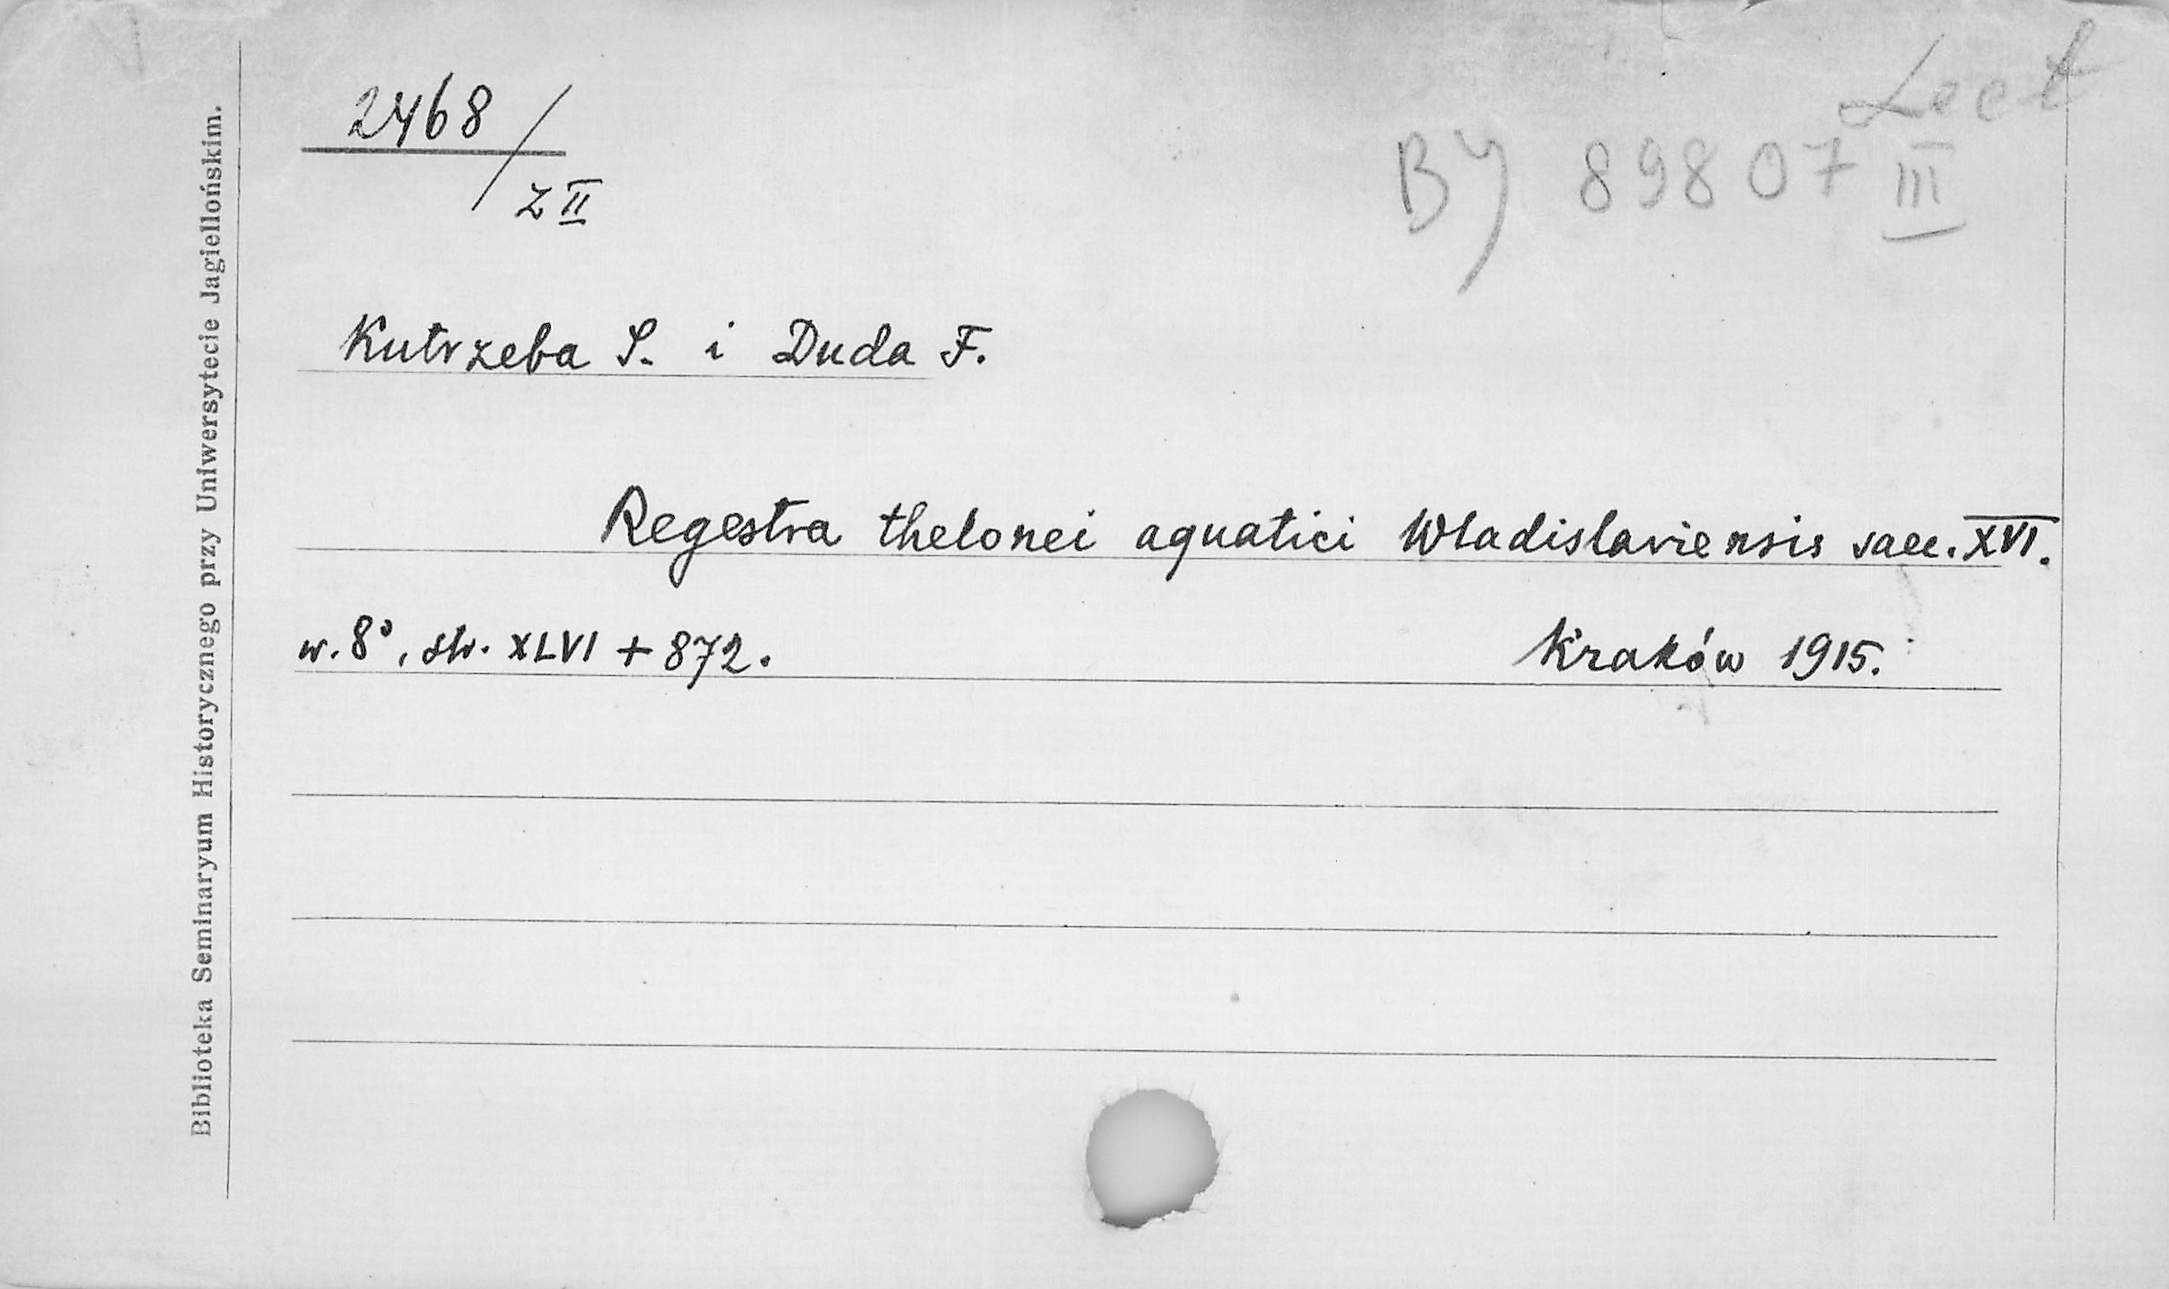 2468/Z II
Lect
BJ 89807 III
Kutrzeba S. i Duda F.
Regestra thelonei aquatici Wladislaviensis saec. XVI.
w. 8°, str. XLVI + 872.
Kraków 1915.
Biblioteka Seminaryum Historycznego przy Uniwersytecie Jagiellońskim.